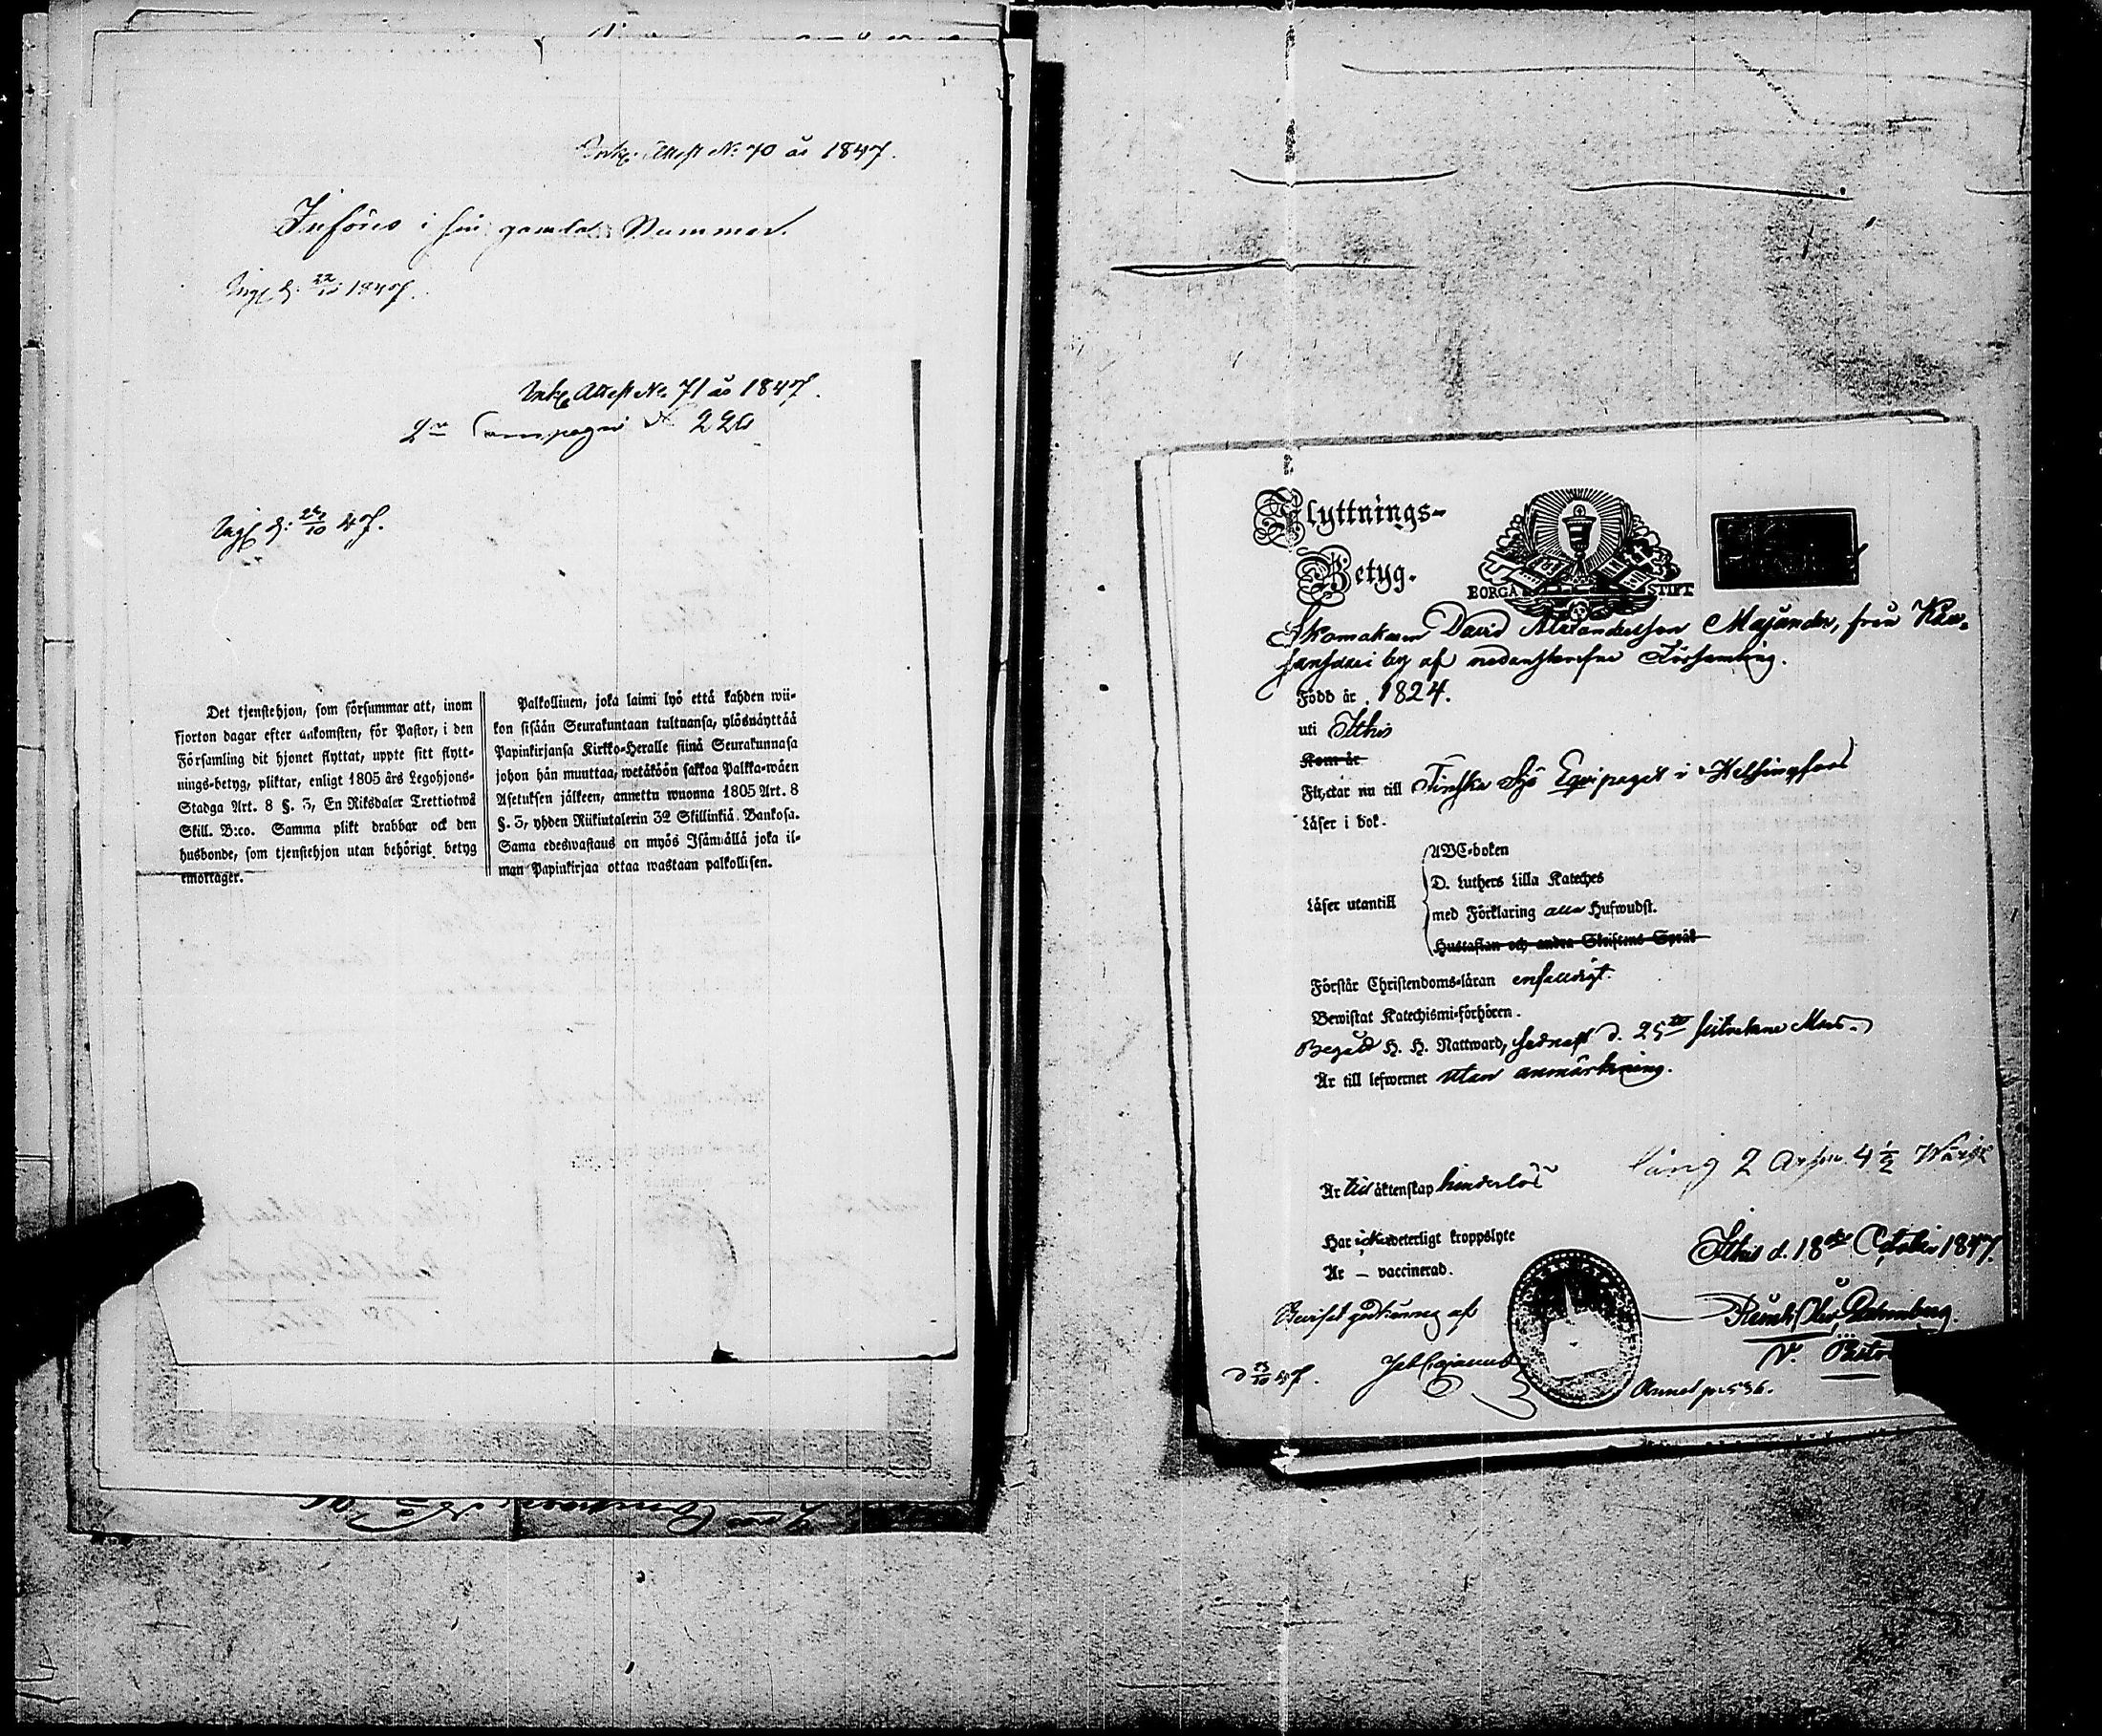 Ink. Attest No 70 år 1847.
Införes i sin gamla Nummer.
Ingf d: 22/10 1847.
Ink. Attest No 71 år 1847.
2n Compagni No
Ingf d: 22/10 47.
Det tjenstehjon, som försummar att, inom
fjorton dagar efter ankomsten, för Pastor, i den
Församling dit hjonet flyttat, uppte sitt flytt-
nings-betyg, pliktar, enligt 1805 års Legohjons-
Stadga Art. 8 §. 3, En Riksdaler Trettiotwå
Skill. B:co. Samma plikt drabbar ock den
husbonde, som tjenstehjon utan behörigt betyg
emottager.
Palkollinen, joka laimi lyö että kahden wii-
kon sisään Seurakuntaan tultuansa, ylösnäyttää
Papinkirjansa Kirkko-Heralle siinä Seurakunnasa
johon hän muuttaa, wetäköön sakkoa Palkka-wäen
Asetuksen jälkeen, annettu wuonna 1805 Art. 8
§. 3, yhden Riikintalerin 32 Skillinkiä Bankosa.
Sama edeswastaus on myös Isännällä joka il-
man Papinkirjaa ottaa wastaan palkollisen.
Flyttnings-
Betyg.
BORGÅ STIFT
Skomakaren David Alexandersson Majander, från
by af nedanskrefne Församling.
Född år 1824.
uti Itthis
Kom år
Flyttar nu till Finska Sjö Equipaget i Helsingfors
Läser i bok.
Läser utantill
ABC-boken
D. Luthers Lilla Kateches
med Förklaring alla Hufwudst.
Hustaflan och andra Skriftens Språk
Förstår Christendoms-läran enfalldigt.
Bewistat Katechismi-förhören.
Begått H. H. Nattward, sednast d. 25te sistvekne Mars.
Är till lefwernet utan anmärkning.
lång 2 Arsin 4 1/2
Är till äktenskap hinderlös
Har icke weterligt kroppslyte
Är – vaccinerad.
Itthis d. 18de October 1847.
af
d 23/10 47.
V. Pastor
Annot. p. 536.